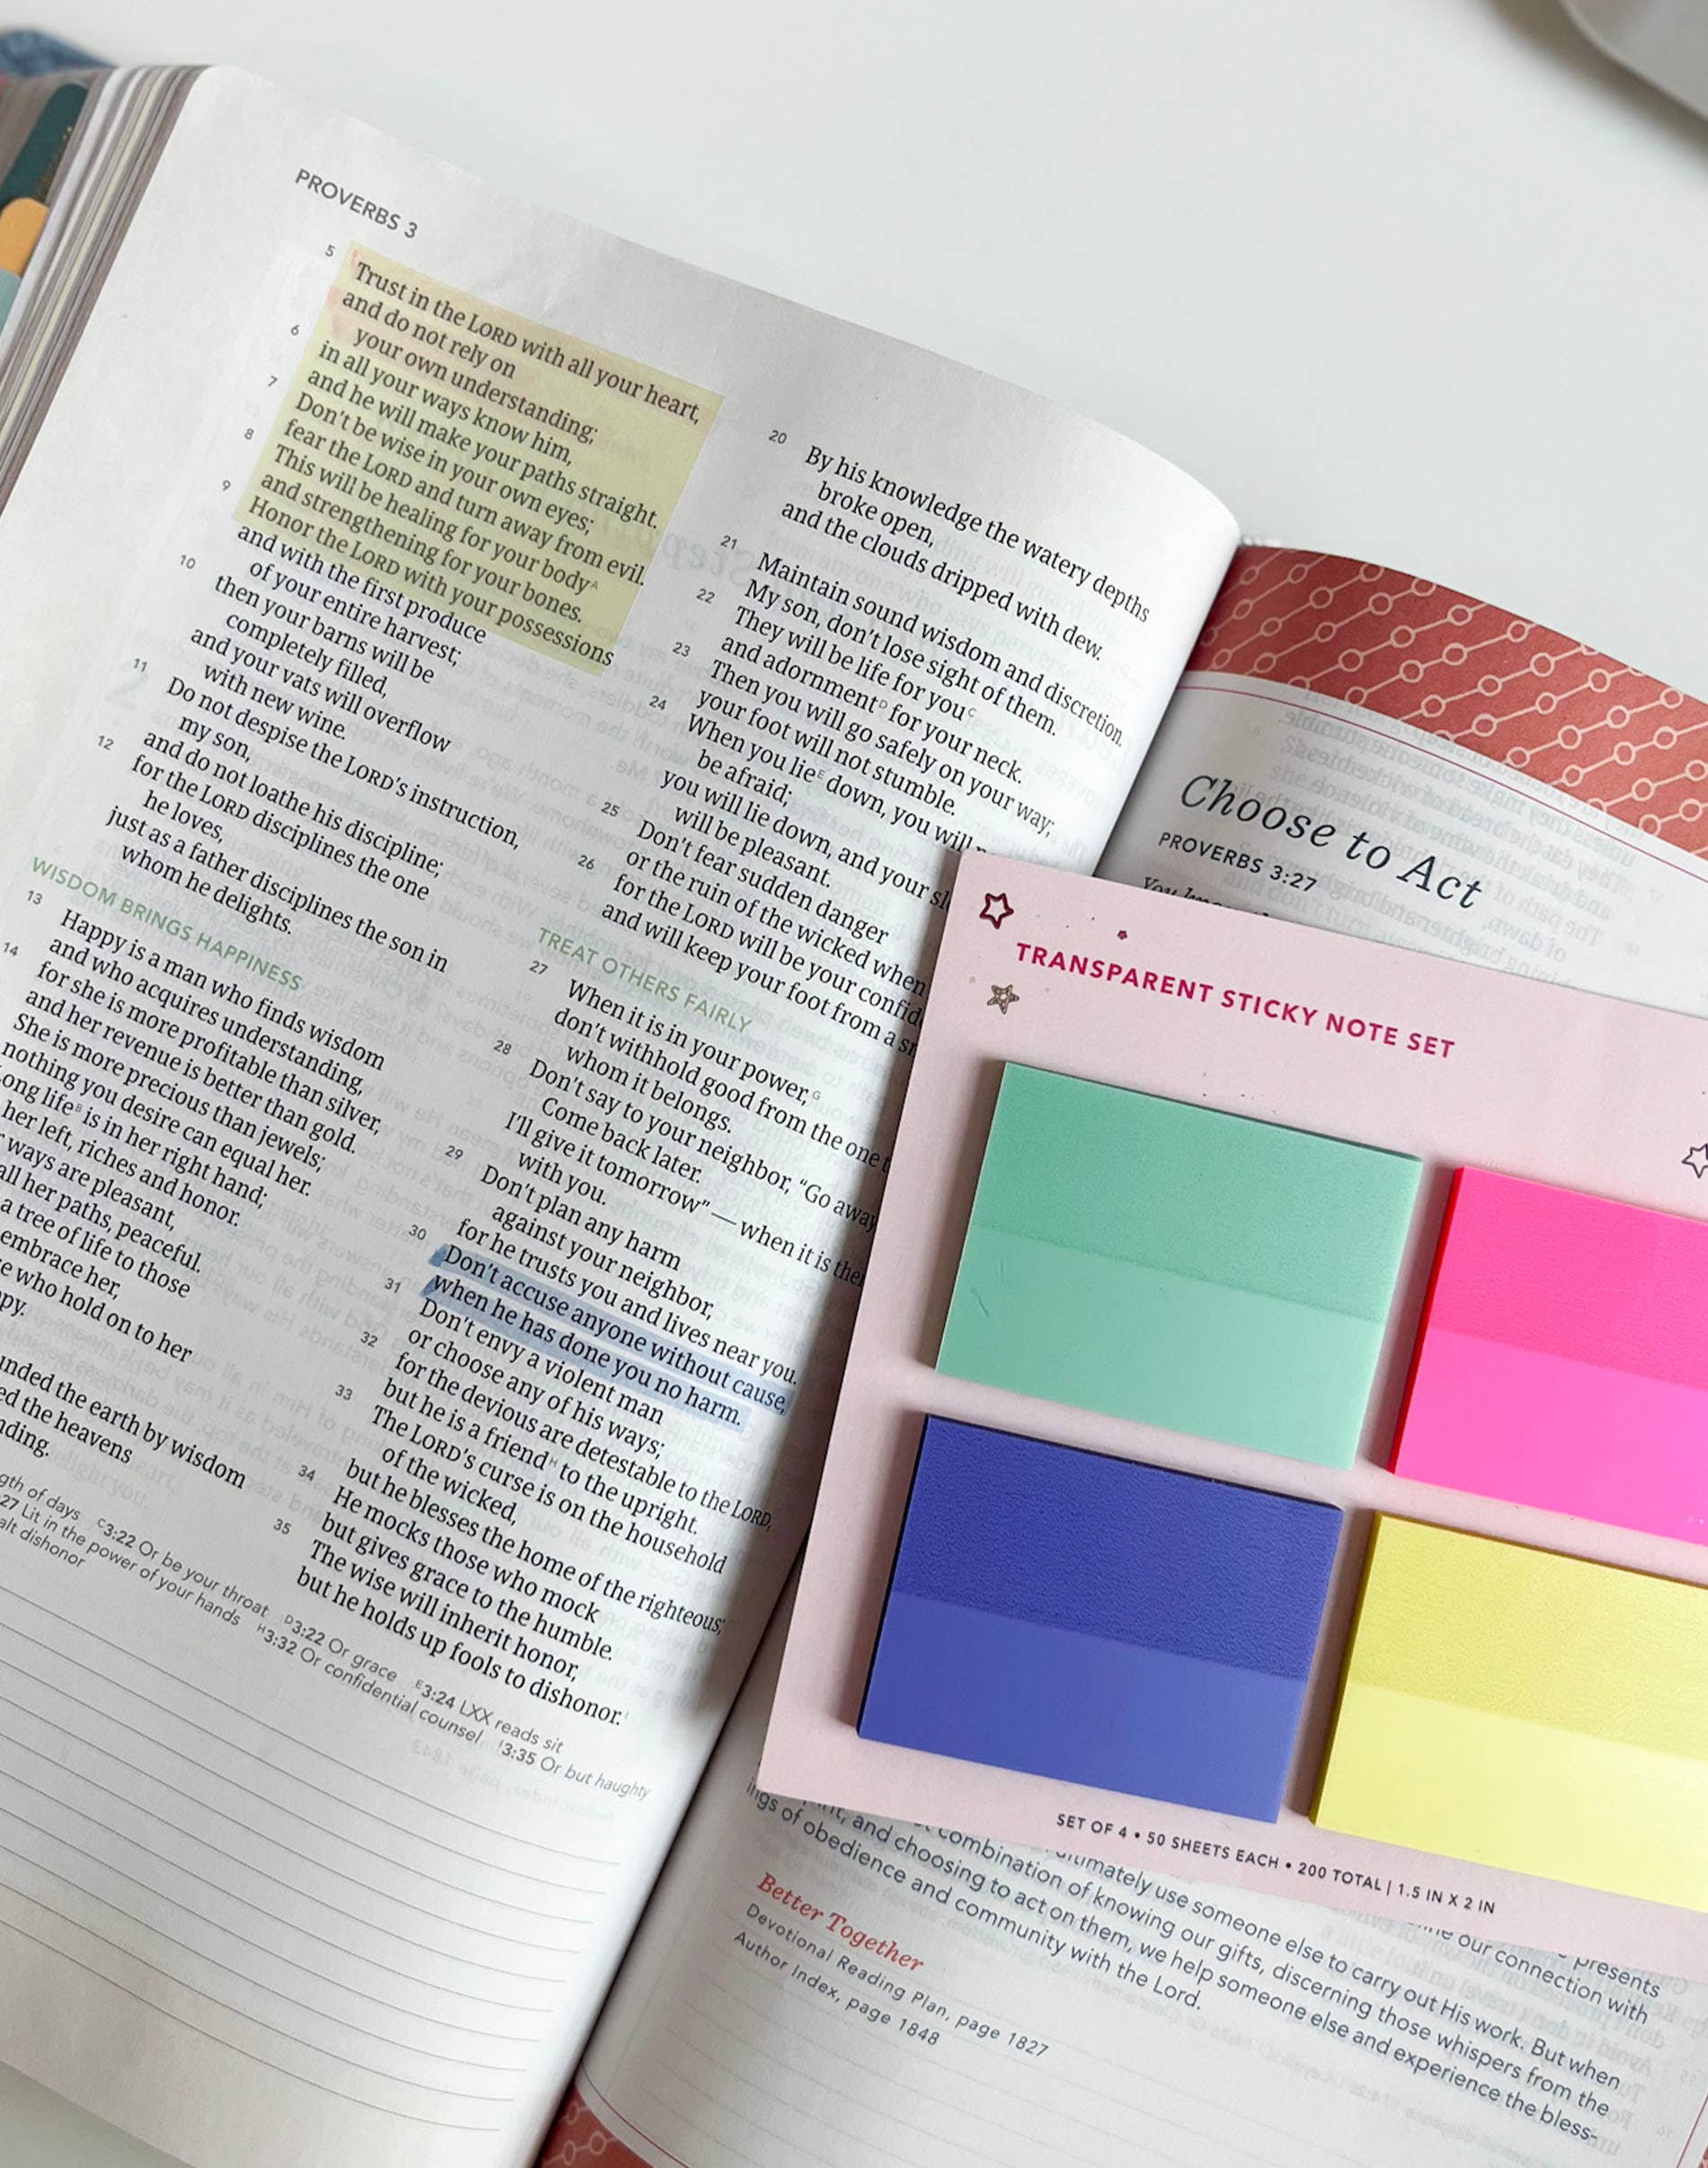 PROVERBS 3
5 Trust in the LORD with all your heart,
and do not rely on
your own understanding;
6 in all your ways know him,
and he will make your paths straight.
7 Don't be wise in your own eyes;
fear the LORD and turn away from evil.
8 This will be healing for your body^A
and strengthening for your bones.
9 Honor the LORD with your possessions
and with the first produce
of your entire harvest;
10 then your barns will be
completely filled,
and your vats will overflow
with new wine.
11 Do not despise the LORD's instruction,
my son,
and do not loathe his discipline;
12 for the LORD disciplines the one
he loves,
just as a father disciplines the son in
whom he delights.
WISDOM BRINGS HAPPINESS
13 Happy is a man who finds wisdom
and who acquires understanding,
14 for she is more profitable than silver,
and her revenue is better than gold.
She is more precious than jewels;
nothing you desire can equal her.
Long life^B is in her right hand;
her left, riches and honor.
ways are pleasant,
all her paths, peaceful.
a tree of life to those
embrace her,
who hold on to her
earth by wisdom
the heavens
20 By his knowledge the watery depths
broke open,
and the clouds dripped with dew.
21 Maintain sound wisdom and discretion.
My son, don't lose sight of them.
22 They will be life for you^C
and adornment^D for your neck.
23 Then you will go safely on your way;
your foot will not stumble.
24 When you lie^E down, you will
be afraid;
you will lie down, and your
will be pleasant.
25 Don't fear sudden danger
or the ruin of the wicked when
26 for the LORD will be your
and will keep your foot from a
TREAT OTHERS FAIRLY
27 When it is in your power,^G
don't withhold good from the one
whom it belongs.
28 Don't say to your neighbor, "Go away
Come back later.
I'll give it tomorrow" — when it is
with you.
29 Don't plan any harm
against your neighbor,
for he trusts you and lives near you.
30 Don't accuse anyone without cause,
when he has done you no harm.
31 Don't envy a violent man
or choose any of his ways;
32 for the devious are detestable to the LORD,
but he is a friend^H to the upright.
33 The LORD's curse is on the household
of the wicked,
but he blesses the home of the righteous;
34 He mocks those who mock
but gives grace to the humble.
35 The wise will inherit honor,
but he holds up fools to dishonor.^I
of days ^C3:22 Or be your throat ^D3:22 Or grace ^E3:24 LXX reads sit
27 Lit in the power of your hands ^H3:32 Or confidential counsel ^I3:35 Or but haughty
dishonor
Choose to Act
PROVERBS 3:27
TRANSPARENT STICKY NOTE SET
SET OF 4 • 50 SHEETS EACH • 200 TOTAL | 1.5 IN X 2 IN
presents
our connection with
ultimately use someone else to carry out His work. But when
combination of knowing our gifts, discerning those whispers from the
and choosing to act on them, we help someone else and experience the bless-
ings of obedience and community with the Lord.
Better Together
Devotional Reading Plan, page 1827
Author Index, page 1848